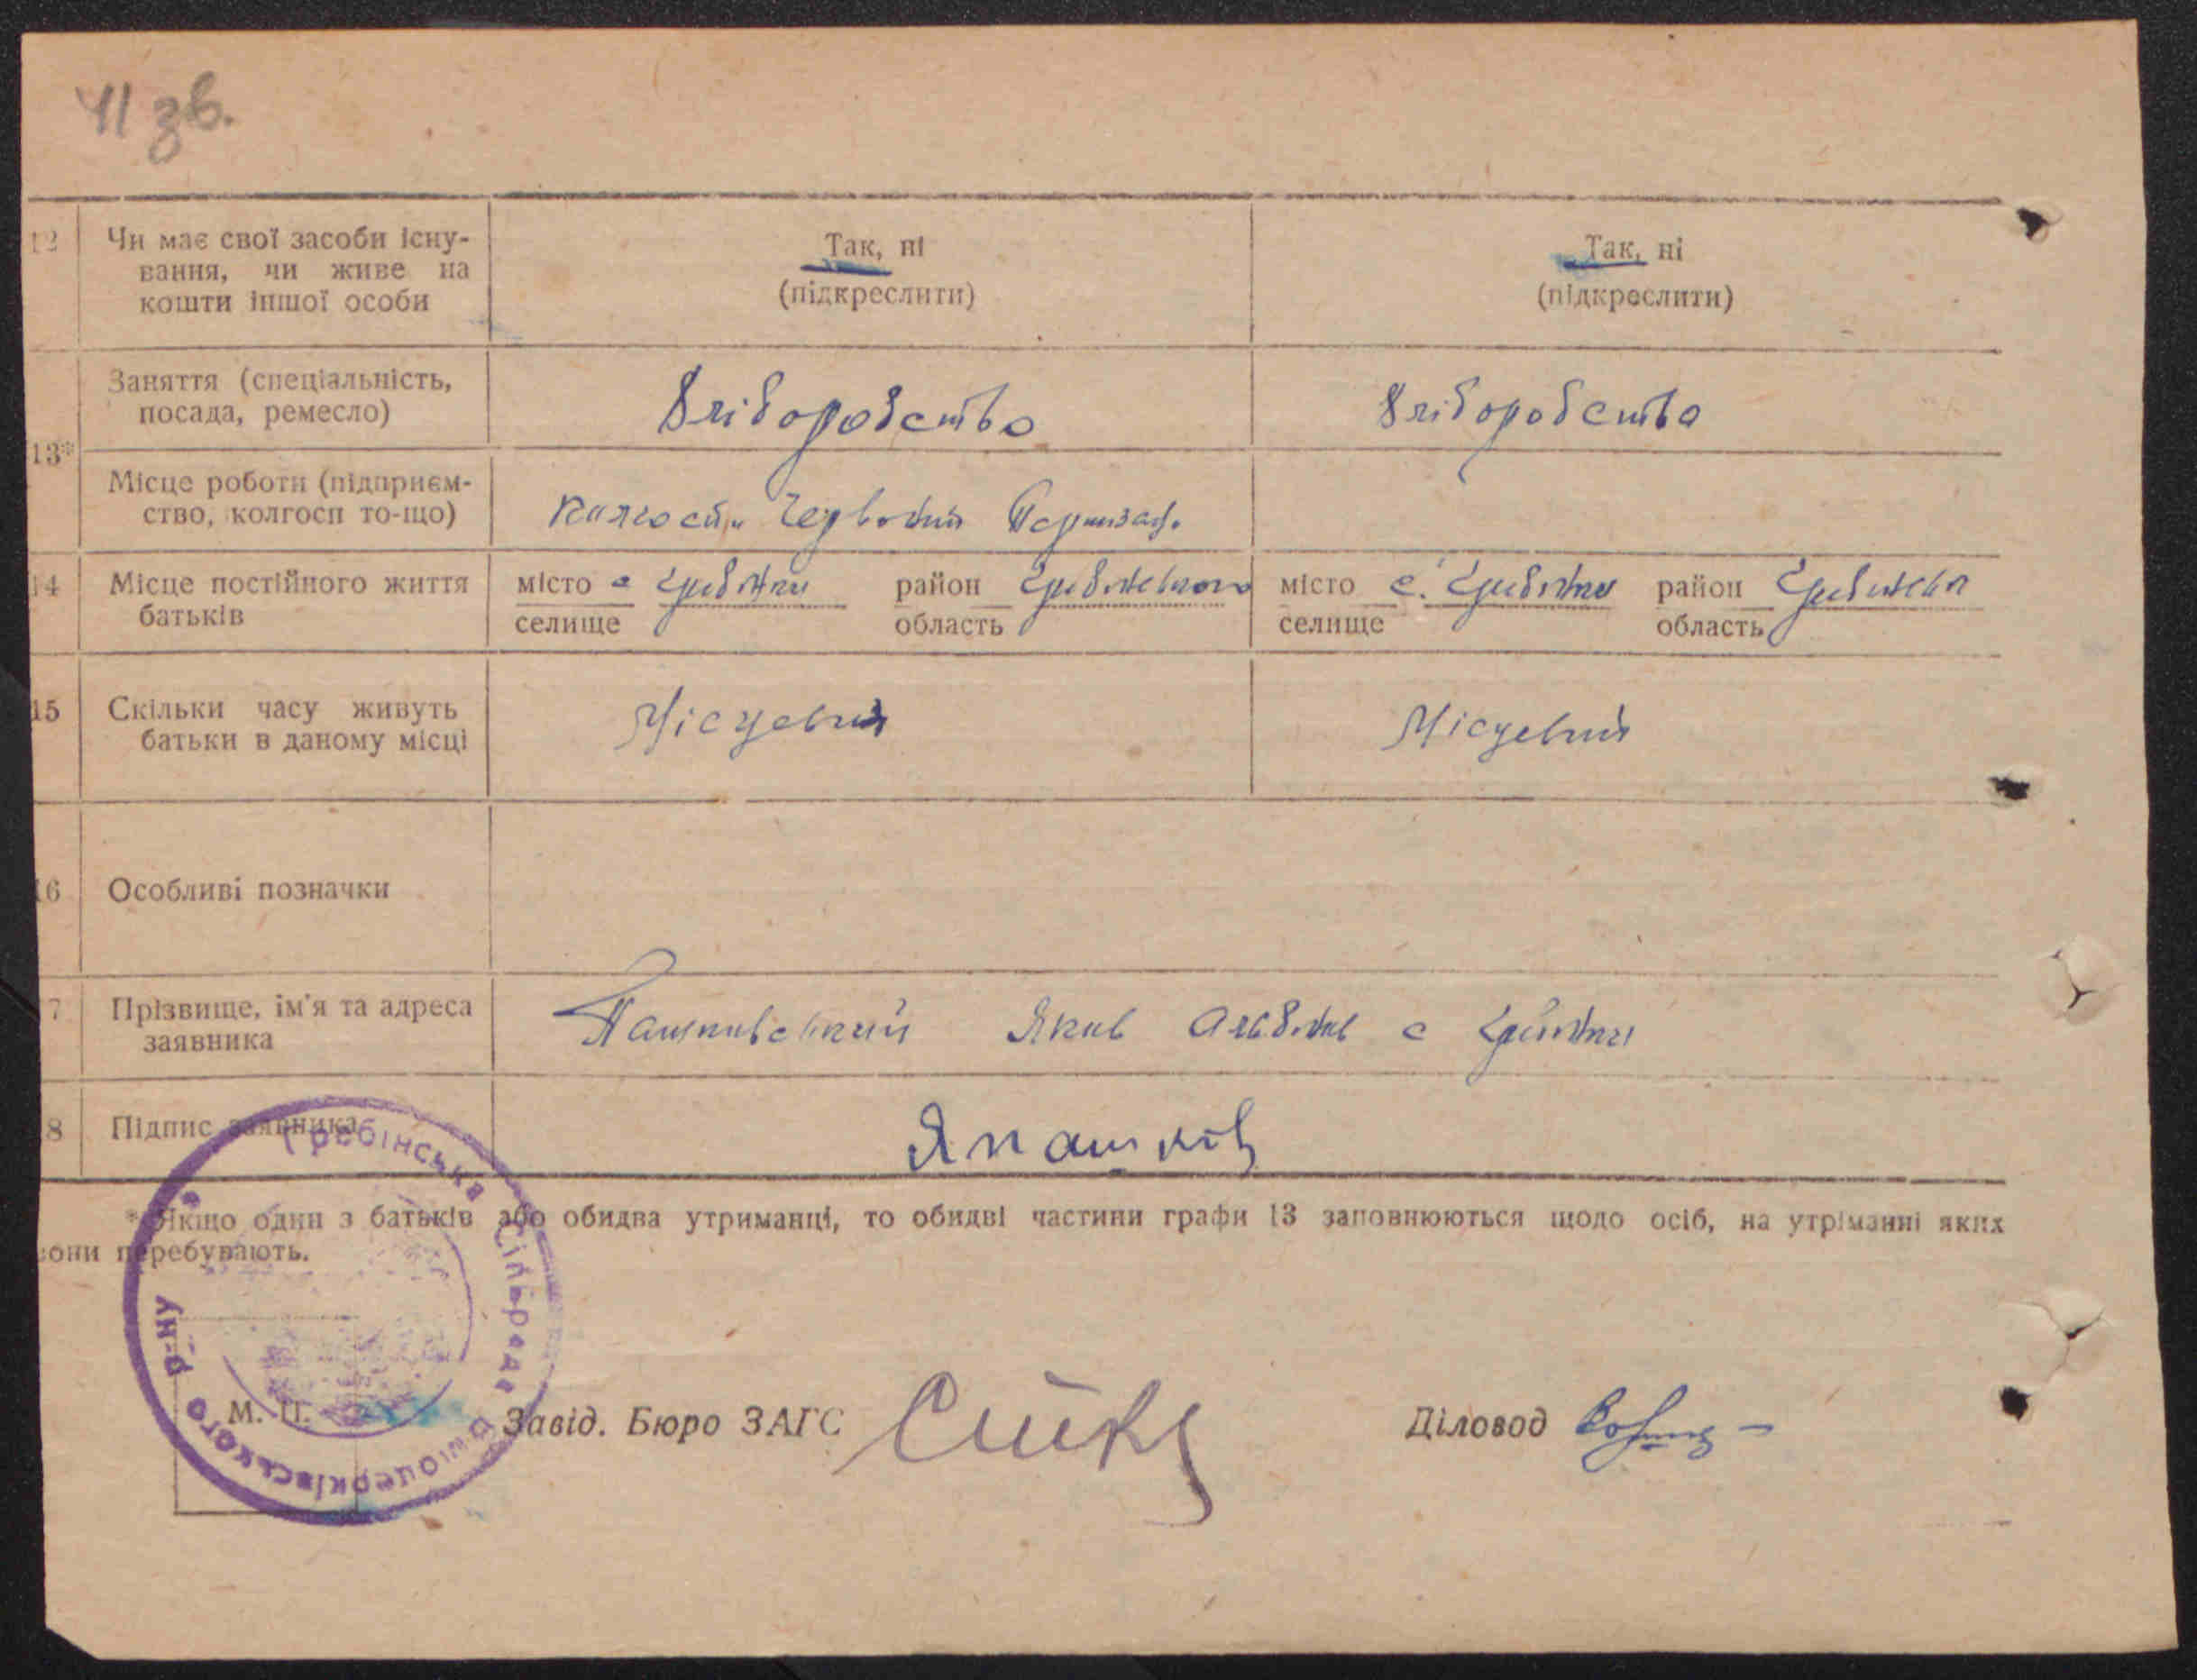 41 зв.
12 Чи має свої засоби існу- Так, ні Так, ні
вання, чи живе на (підкреслити) (підкреслити)
кошти іншої особи
Заняття (спеціальність, Хліборобство Хліборобство
посада, ремесло)
13*
Місце роботи (підприєм- колгосп Червоний
ство, колгосп то-що)
14 Місце постійного життя місто с район місто с. район
батьків селище область селище область
15 Скільки часу живуть Місцевий Місцевий
батьки в даному місці
16 Особливі позначки
7 Прізвище, ім'я та адреса Пашківський Яків с
заявника
8 Підпис заявника Япашків
* Якщо один з батьків або обидва утриманці, то обидві частини графи 13 заповнюються щодо осіб, на утріманні яких
вони перебувають.
Гребінська Сільрада Білоцерківського р-ну
М. П. Завід. Бюро ЗАГС Діловод